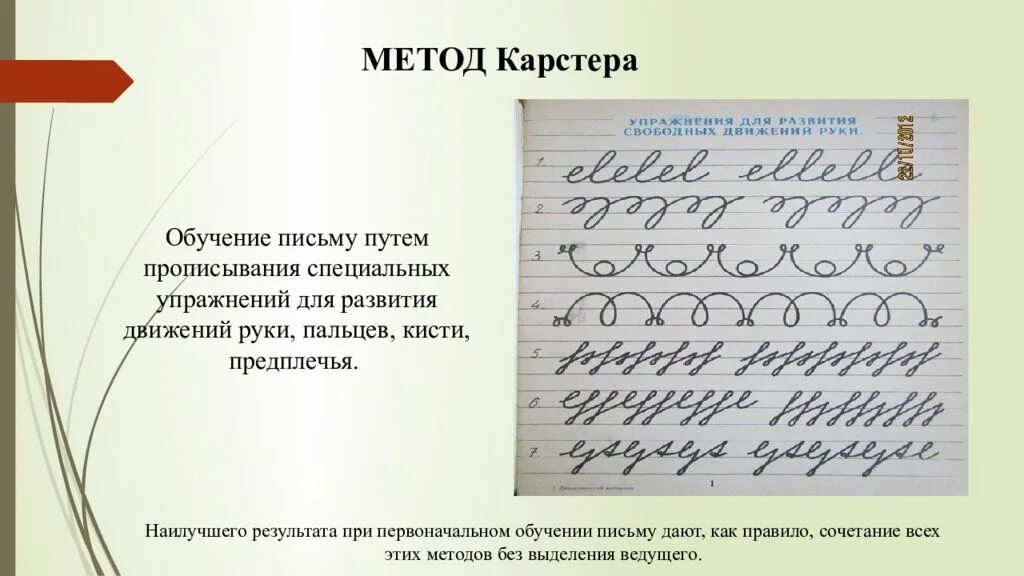 МЕТОД Карстера
Обучение письму путем
прописывания специальных
упражнений для развития
движений руки, пальцев, кисти,
предплечья.
УПРАЖНЕНИЯ ДЛЯ РАЗВИТИЯ
СВОБОДНЫХ ДВИЖЕНИЙ РУКИ.
23/10/2012
1.
2.
3.
4.
5.
6.
7.
1
Наилучшего результата при первоначальном обучении письму дают, как правило, сочетание всех
этих методов без выделения ведущего.